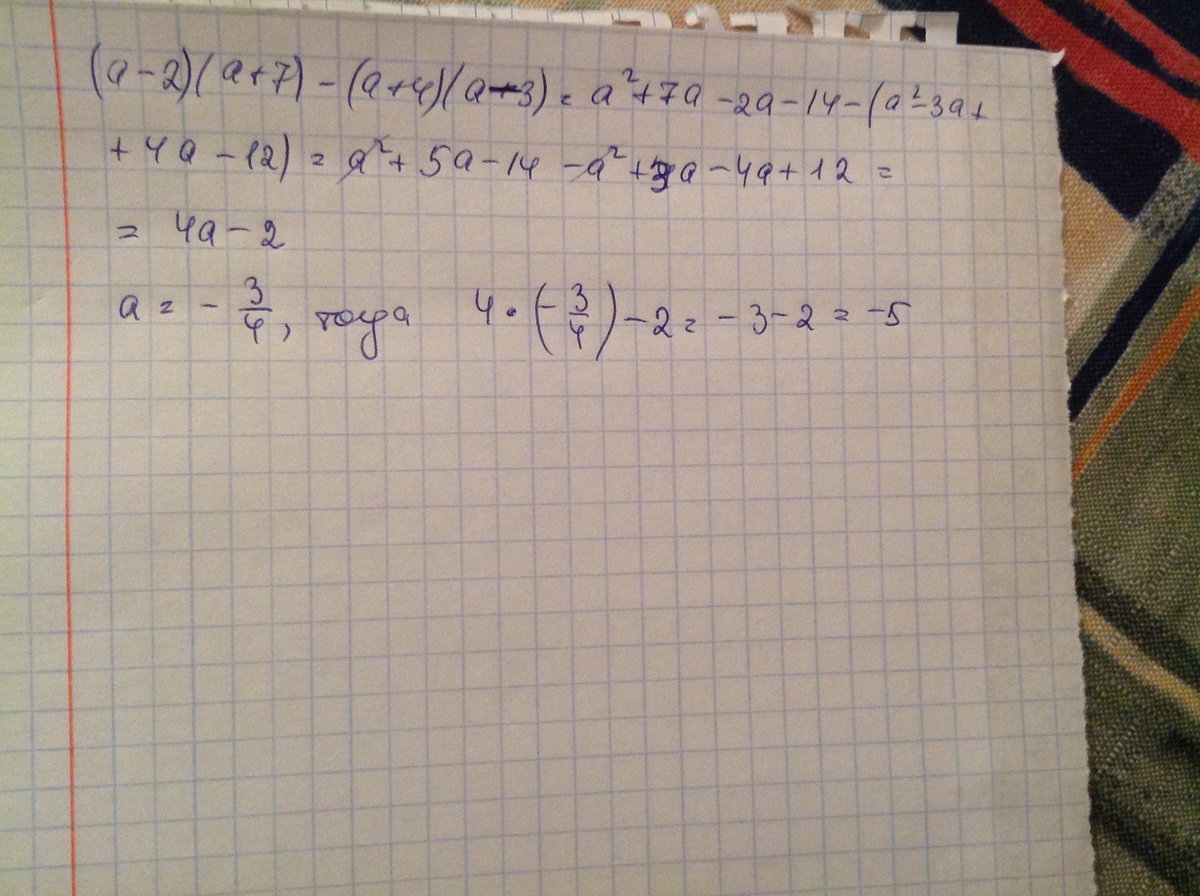 (a-2)(a+7)-(a+4)(a-3)= a²+7a-2a-14-(a²-3a+
+4a-12)= a²+5a-14-a²+3a-4a+12=
= 4a-2
a = -3/4, тогда 4·(-3/4)-2= -3-2= -5